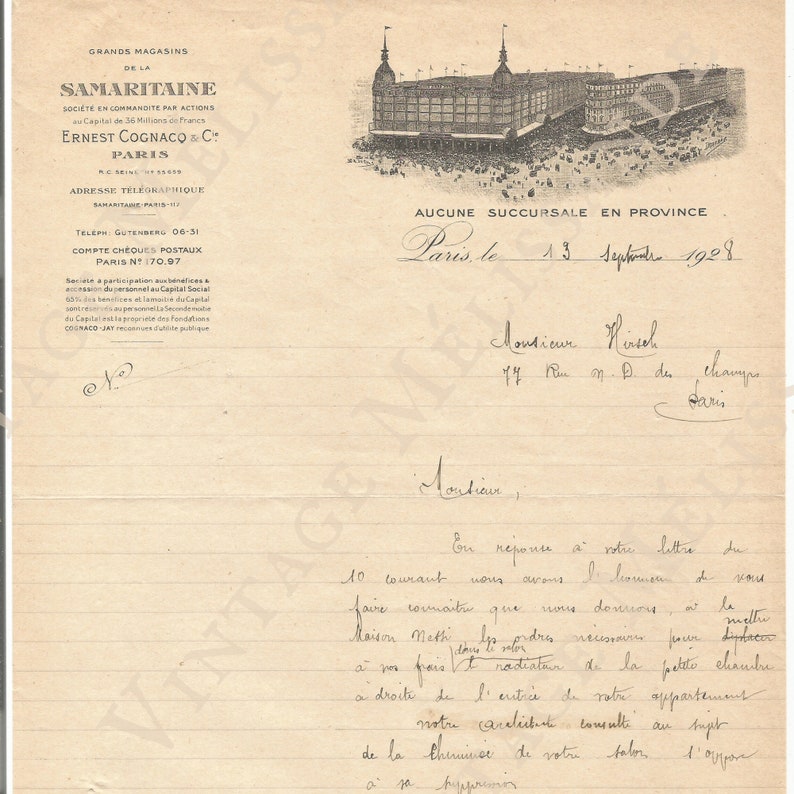 GRANDS MAGASINS
DE LA
SAMARITAINE
SOCIÉTÉ EN COMMANDITE PAR ACTIONS
au Capital de 36 Millions de Francs
ERNEST COGNACQ & Cie
PARIS
R.C. SEINE N° 55659
ADRESSE TÉLÉGRAPHIQUE
SAMARITAINE-PARIS-112
TÉLÉPH: GUTENBERG 06-31
COMPTE CHÈQUES POSTAUX
PARIS N° 170.97
Société à participation aux bénéfices &
accession du personnel au Capital Social
65% des bénéfices et la moitié du Capital
sont réservés au personnel. La Seconde moitié
du Capital est la propriété des Fondations
COGNACQ-JAY reconnues d'utilité publique
N°
AUCUNE SUCCURSALE EN PROVINCE
Paris, le 13 Septembre 1928
Monsieur Hirsch
77 Rue N. D. des Champs
Paris
Monsieur,
En réponse à votre lettre du
10 courant nous avons l'honneur de vous
faire connaitre que nous donnons, à la
Maison Nessi les ordres nécessaires pour déplacer mettre
à vos frais dans le salon le radiateur de la petite chambre
à droite de l'entrée de votre appartement
notre architecte consulté au sujet
de la cheminée de votre salon s'oppose
à sa suppression
VINTAGE MÉLISSANDE